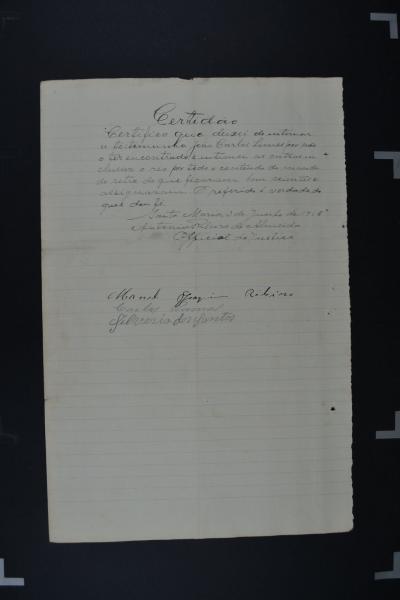 Certidão
Certifico que deixei de intimar
a testemunha João Carlos Lima por não
o ter encontrado e intimei as outras in
clusive o reo por todo o conteúdo do mandado
do retro do que ficaram bem scientes e
assignaram. O referido é verdade do
que dou fé.
Santa Maria, 2 de Junho de 191
Antonio de Almeida
Official de Justiça
Manoel Joaquim Ribeiro
Carlos
dos Santos